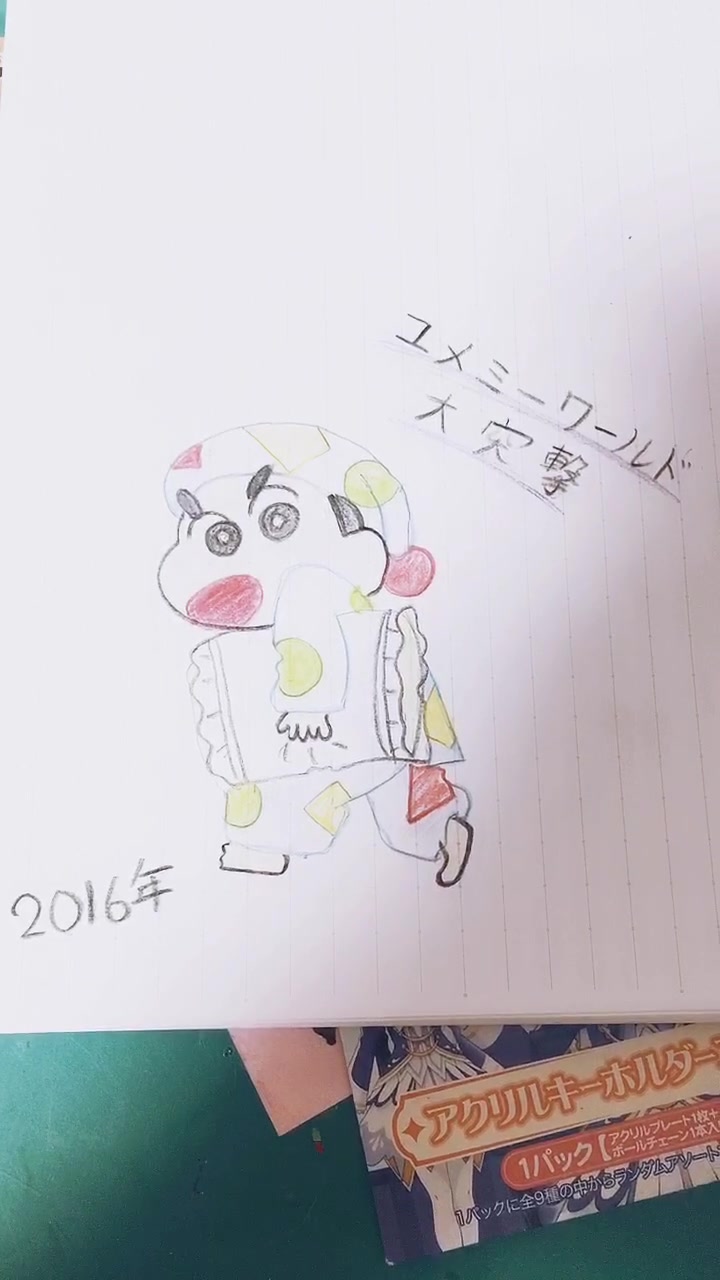 ユメミーワールド
大突撃
2016年
アクリルキーホルダー
1パック【アクリルプレート1枚+
ボールチェーン1本入
1パックに全9種の中からランダムアソート